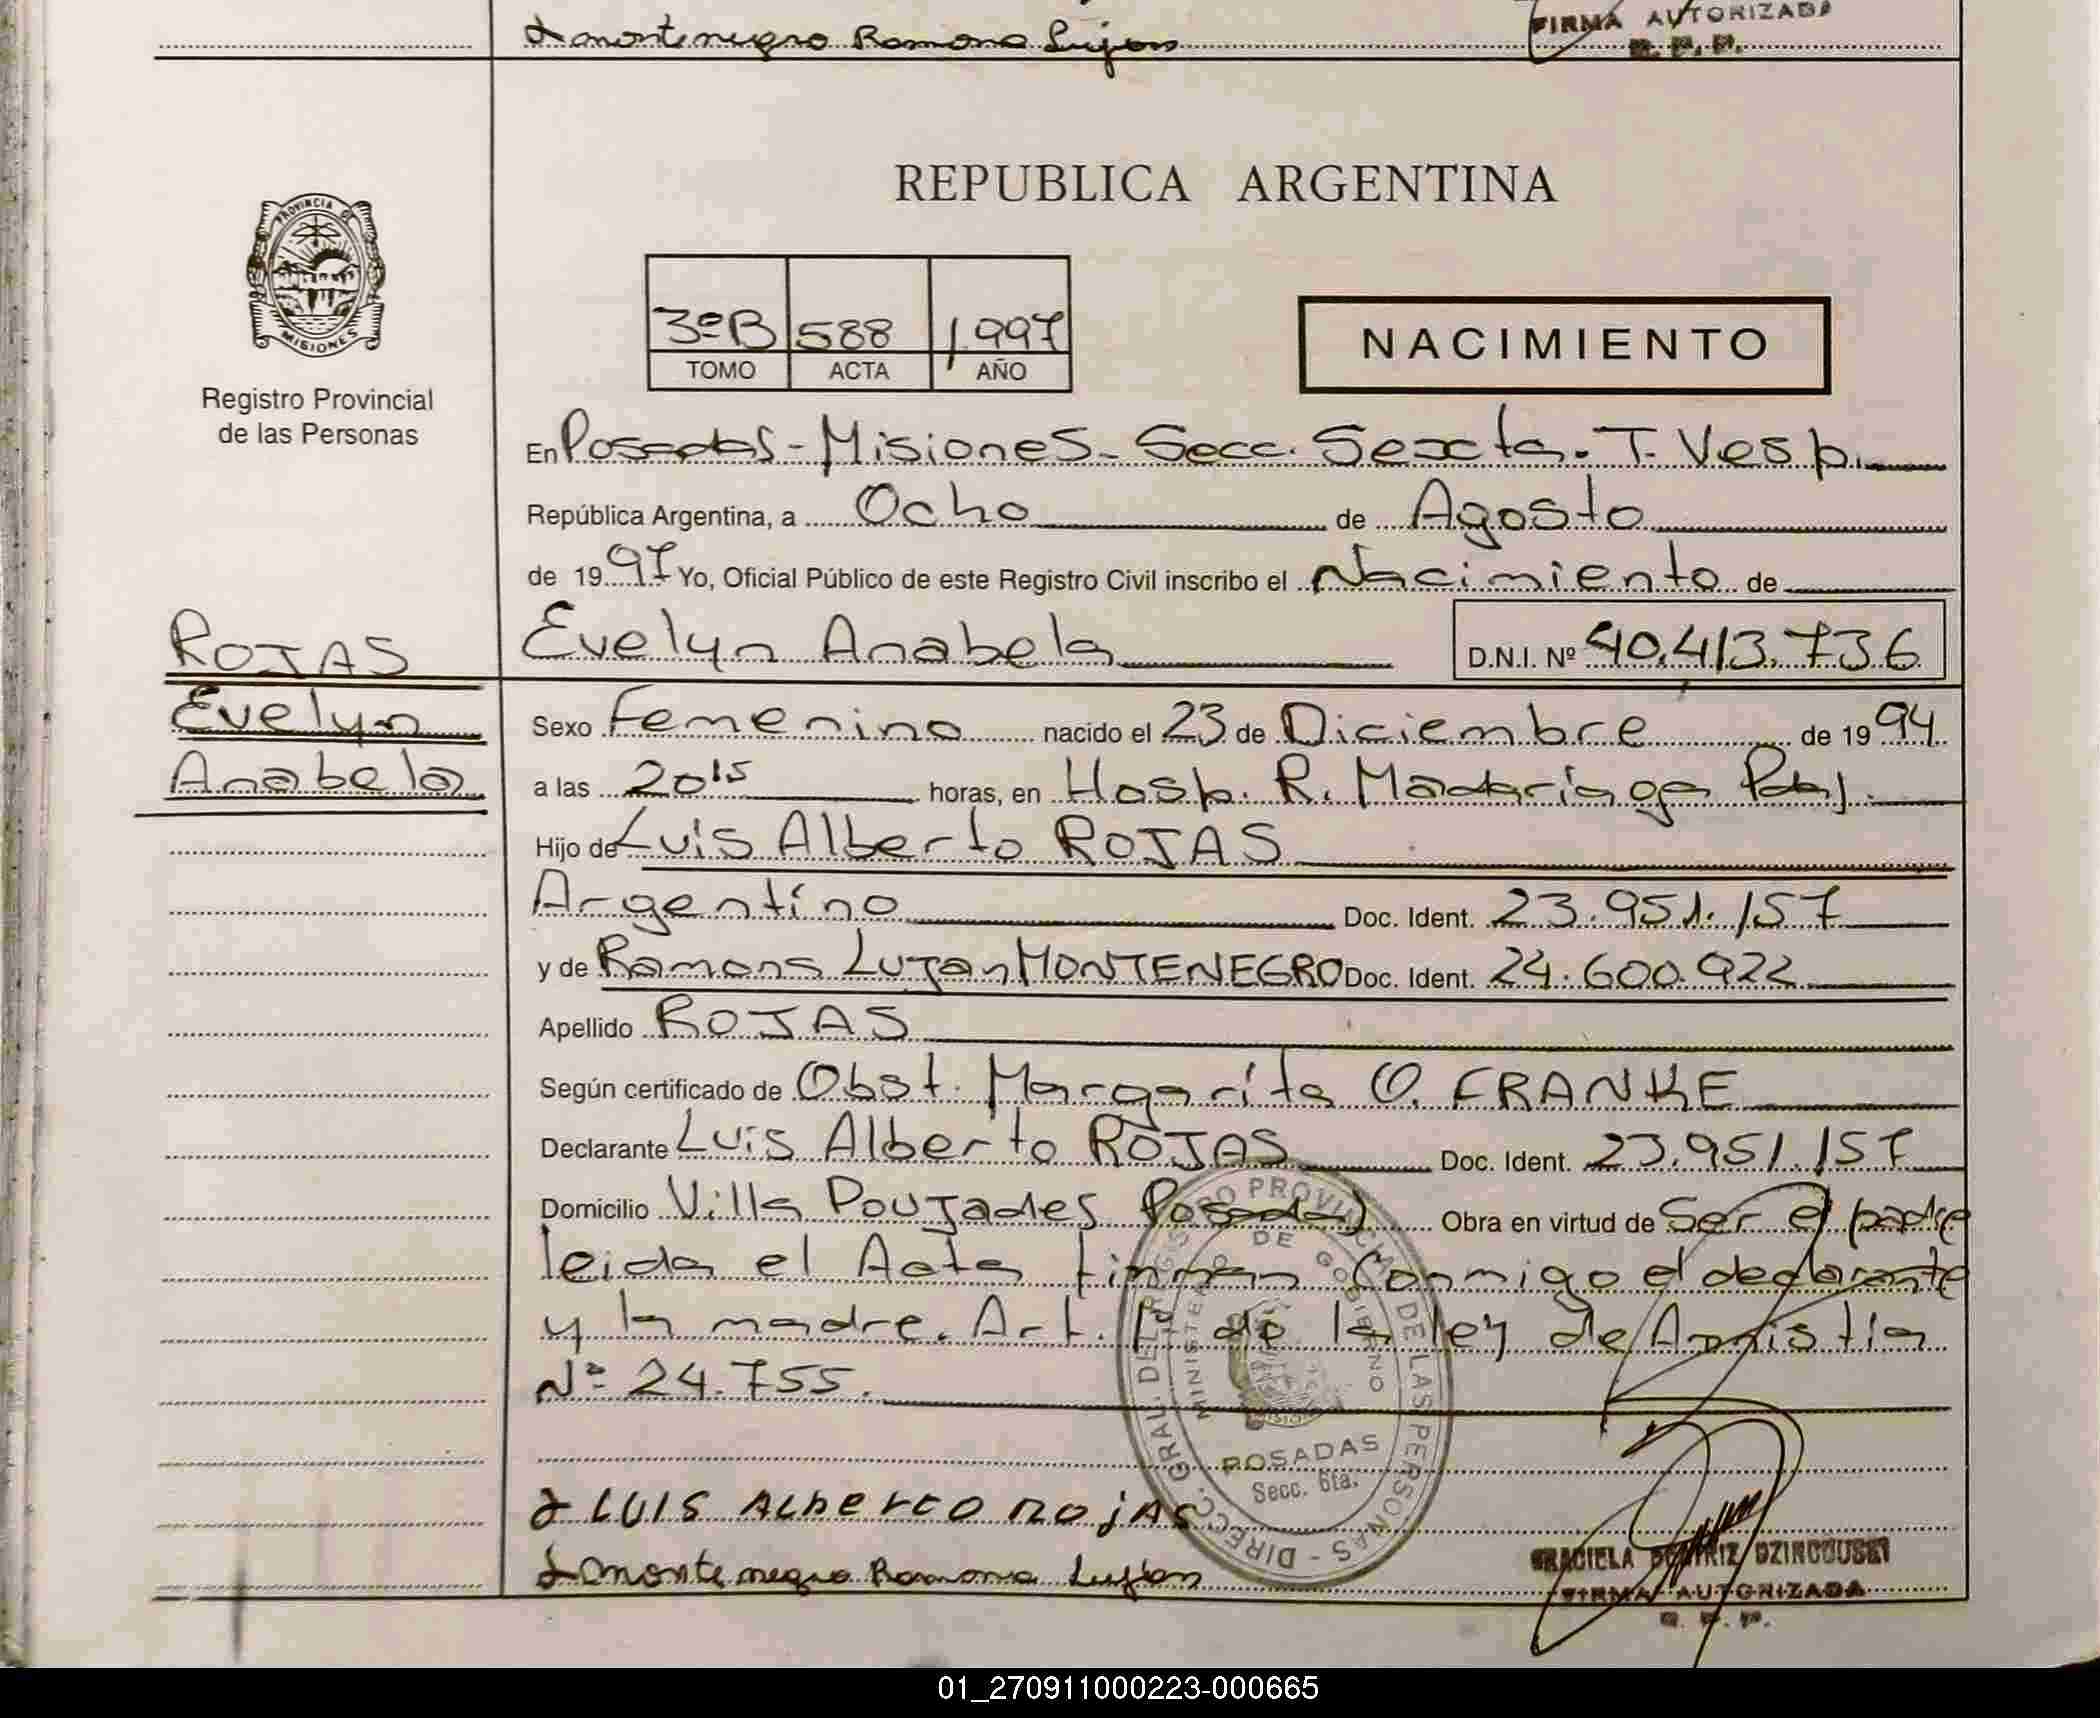 Montenegro Ramona Lujan
FIRMA AUTORIZADA
R. P. P.
REPUBLICA ARGENTINA
PROVINCIA DE
MISIONES
Registro Provincial
de las Personas
3º B 588 1.997
TOMO ACTA AÑO
NACIMIENTO
En Posadas - Misiones - Secc. Sexta. T. Vesp.
República Argentina, a Ocho de Agosto
de 19 97 Yo, Oficial Público de este Registro Civil inscribo el Nacimiento de
ROJAS
Evelyn
Anabela
Evelyn Anabela D.N.I. Nº 40.413.736
Sexo Femenino nacido el 23 de Diciembre de 19 94
a las 20 15 horas, en Hosp. R. Madariaga Pdas.
Hijo de Luis Alberto ROJAS
Argentino Doc. Ident. 23.951.157
y de Ramona Lujan MONTENEGRO Doc. Ident. 24.600.922
Apellido ROJAS
Según certificado de Obst. Margarita O. FRANKE
Declarante Luis Alberto ROJAS Doc. Ident. 23.951.157
Domicilio Villa Poujades Posadas Obra en virtud de Ser el padre
leida el Acta firman conmigo el declarante
y la madre. Art. 1º de la ley de Amnistia
Nº 24.755.
DIRECC. GRAL. DEL REGISTRO PROVINCIAL DE LAS PERSONAS
MINISTERIO DE GOBIERNO
POSADAS
Secc. 6ta.
LUIS ALBERTO ROJAS
Montenegro Ramona Lujan
GRACIELA BEATRIZ DZINCOUSKI
FIRMA AUTORIZADA
R. P. P.
01_270911000223-000665